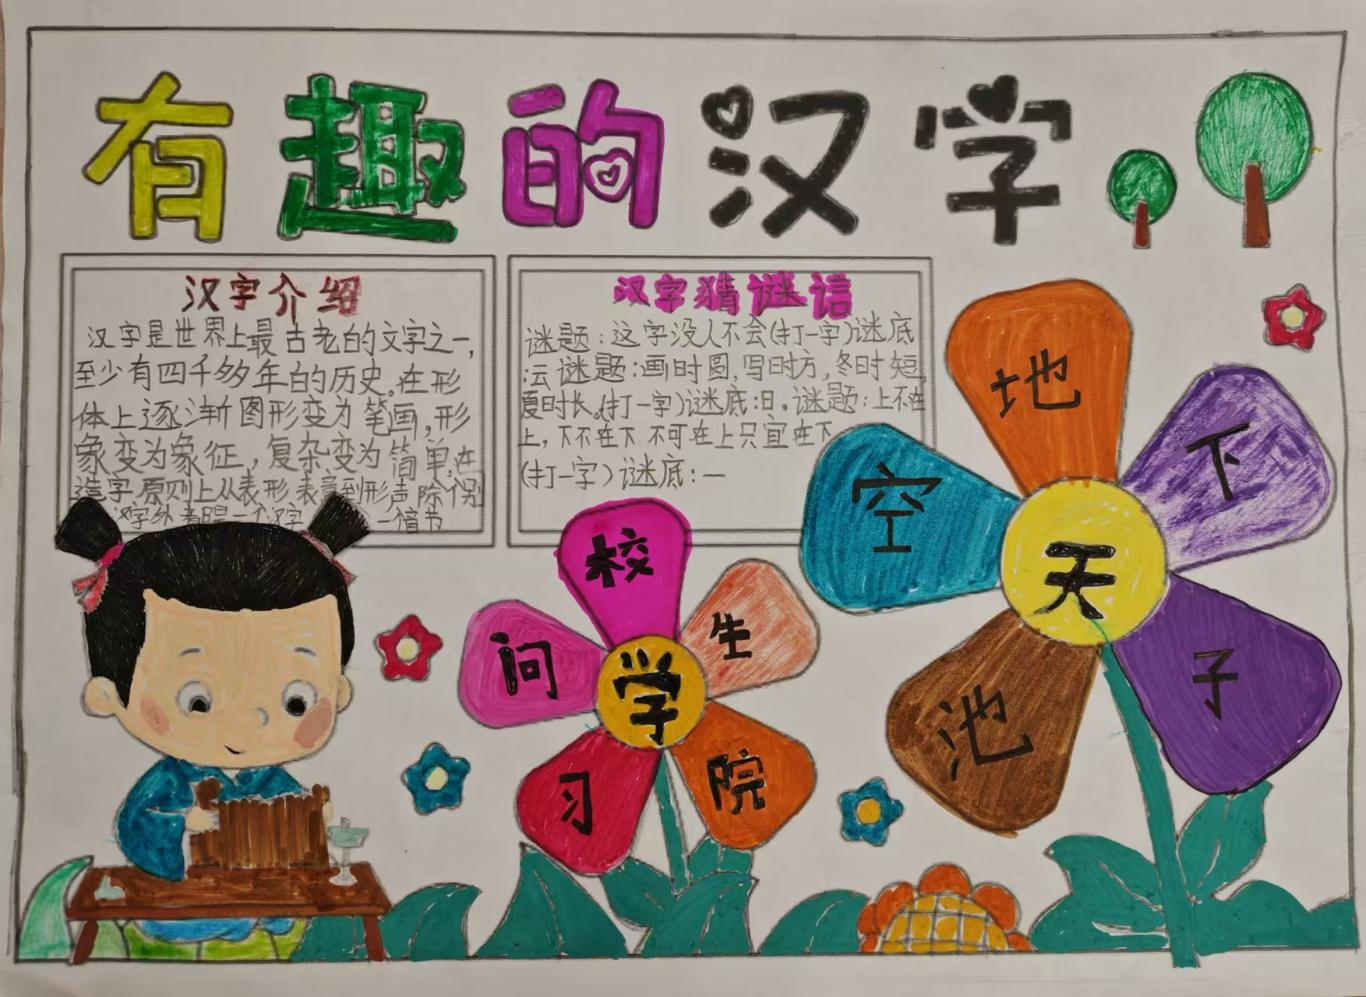 有趣的汉字
汉字介绍
汉字是世界上最古老的文字之一,
至少有四千多年的历史。在形
体上逐渐图形变为笔画,形
象变为象征,复杂变为简单,在
造字原则上从表形、表意到形声,除
汉字
汉字猜谜语
谜题:这字没人不会(打一字)谜底
:云谜题:画时圆,写时方,冬时短,
夏时长。(打一字)谜底:日。谜题:上不在
上,下不在下不可在上只宜在下
(打一字)谜底:一
地
下
空
天
子
池
校
生
问
学
习
院